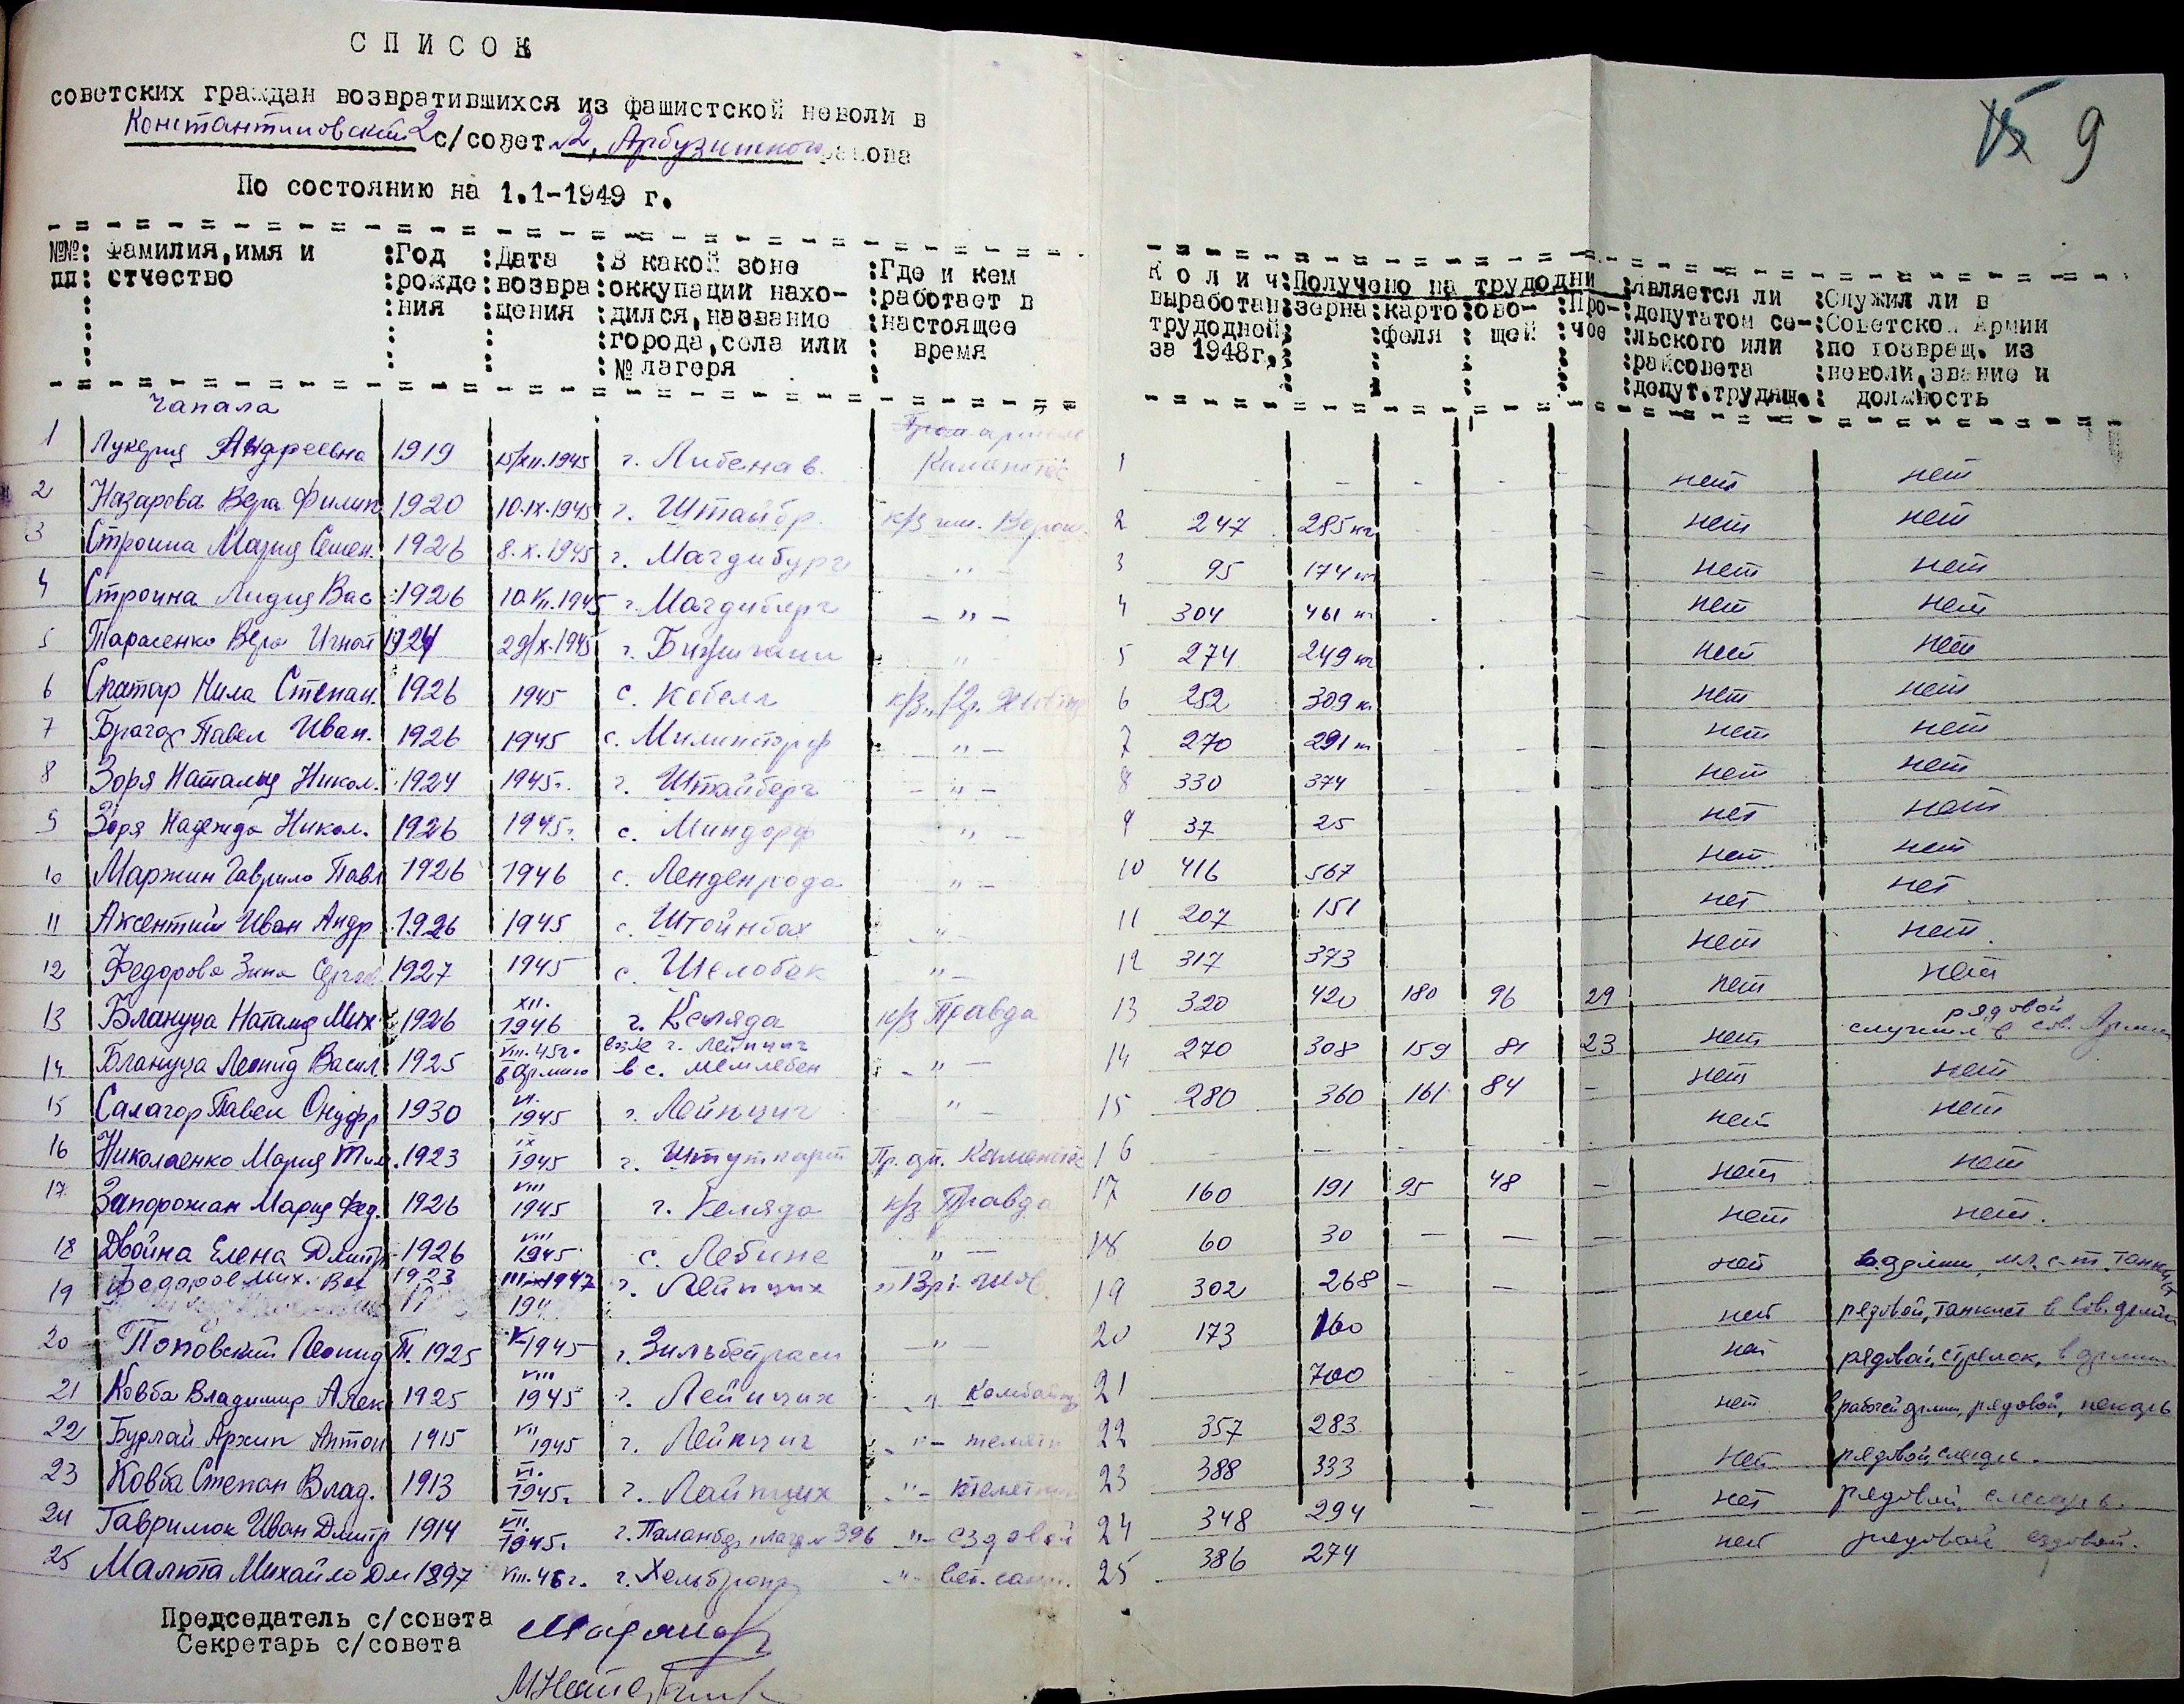 СПИСОК
советских граждан возвратившихся из фашистской неволи в
Константиновский 2 с/совет №2, Арбузинского района
По состоянию на 1.1-1949 г.
9
№№ пп : Фамилия, имя и отчество : Год рождения : Дата возвращения : В какой зоне оккупации находился, название города, села или № лагеря : Где и кем работает в настоящее время : Колич выработан трудодней за 1948г. : Получено на трудодни : зерна : картофеля : овощей : Прочее : Является ли депутатом сельского или райсовета депут. трудящ. : Служил ли в Советской Армии по возвращ. из неволи, звание и должность
Чапала
1 Лукерия Андреевна 1919 15/XII.1945 г. Либенав. 1 - - - - нет нет
2 Назарова Вера Филип 1920 10.IX.1945 г. Штайбр. к/з им. Ворош. 2 247 285 кг нет нет
3 Строина Мария Семен. 1926 8.X.1945 г. Магдибург -"- 3 95 174 кг нет нет
4 Строина Лидия Вас 1926 10.VII.1945 г. Магдибург -"- 4 304 461 кг нет нет
5 Тарасенко Вера Игнат 1924 29/X.1945 г. " 5 274 249 кг нет нет
6 Спатар Нила Степан. 1926 1945 с. Кобелн к/з 6 252 309 к. нет нет
7 Брагар Павел Иван. 1926 1945 с. -"- 7 270 291 кг нет нет
8 Зоря Наталия Никол. 1924 1945г. г. Штайберг -"- 8 330 374 нет нет
9 Зоря Надежда Никол. 1926 1945г. с. Миндорф "- 9 37 25 нет нет
10 Маржин Гаврило Павл 1926 1946 с. Ленденрода "- 10 416 567 нет нет
11 Аксентий Иван Андр 1926 1945 с. Штойнбах -"- 11 207 151 нет нет
12 Федорова Зина Сергев. 1927 1945 с. Шелобек "- 12 317 373 нет нет.
13 Блануца Наталия Мих 1926 XII. 1946 г. Келяда к/з Правда 13 320 420 180 96 29 нет нет
14 Блануца Леонид Васил. 1925 VIII.45г. в армию возле г. Лейпциг в с. Мемлебен -"- 14 270 308 159 81 23 нет рядовой служил в сов. Армии
15 Салагор Павел Онуфр 1930 VI. 1945 г. Лейпциг "- 15 280 360 161 84 - нет нет
16 Николаенко Мария Тим. 1923 IX 1945 г. Штутгарт 16 - - - - нет нет
17 Запорожан Мария Фед. 1926 VIII 1945 г. Келяда к/з Правда 17 160 191 95 48 - нет нет
18 Двойна Елена Дмитр 1926 VIII 1945 с. Лебине "- 18 60 30 - - - нет нет.
19 Федоров Мих. Вас 1923 1947 г. Лейпцих 19 302 268 - - нет в армии, мл. с-т. танкист
20 Поповский Леонид Т. 1925 V-1945 г. -"- 20 173 160 нет рядовой, танкист в Сов. армии
21 Ковба Владимир Алек 1925 VIII 1945 г. Лейпцих -"- 21 700 нет рядовой, стрелок, в армии
22 Бурлай Архип Антон 1915 VII 1945 г. Лейпциг -"- 22 357 283 нет в рабочей армии, рядовой, пекарь
23 Ковба Степан Влад. 1913 VI. 1945г. г. Лайпцих -"- 23 388 333 нет рядовой,
24 Гаврилюк Иван Дмитр 1914 VII. 1945г. 396 -"- ездовой 24 348 294 - - нет рядовой, слесарь.
25 Малюта Михайло Дм 1897 VIII.45г. г. Хельброна -"- 25 386 274 нет рядовой ездовой.
Председатель с/совета
Секретарь с/совета